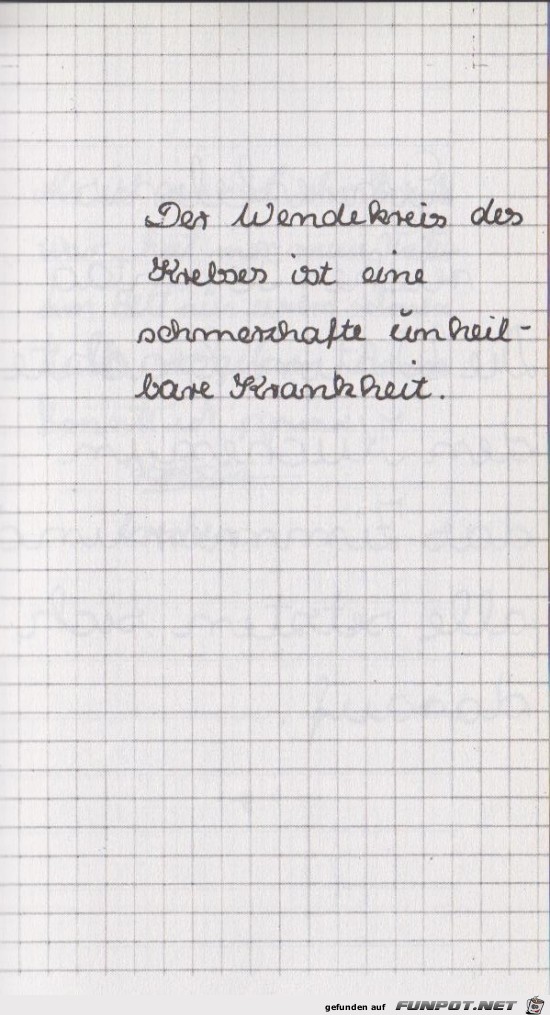 Der Wendekreis des
Krebses ist eine
schmerzhafte unheil-
bare Krankheit.
gefunden auf FUNPOT.NET